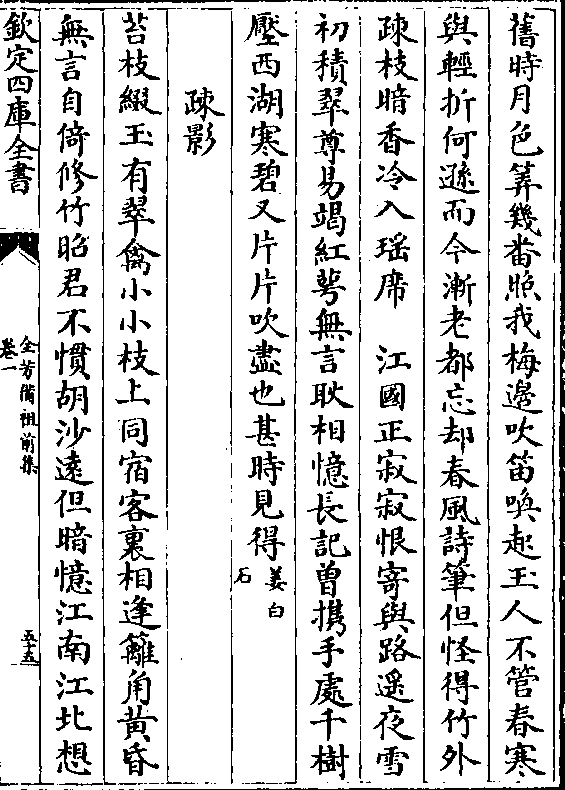 舊時月色筭幾畨照我梅邉吹笛喚起玉人不管春寒
與輕折何遜而今漸老都忘却春風詩筆但怪得竹外
疎枝暗香冷入瑶席　江國正寂寂恨寄與路遥夜雪
初積翠尊易竭紅萼無言耿相憶長記曽攜手處千樹
壓西湖寒碧又片片吹盡也甚時見得姜白石
疎影
苔枝綴玉有翠禽小小枝上同宿客裏相逢籬角黄昏
無言自倚修竹昭君不慣胡沙逺但暗憶江南江北想
欽定四庫全書
全芳備祖前集
卷一
五十五